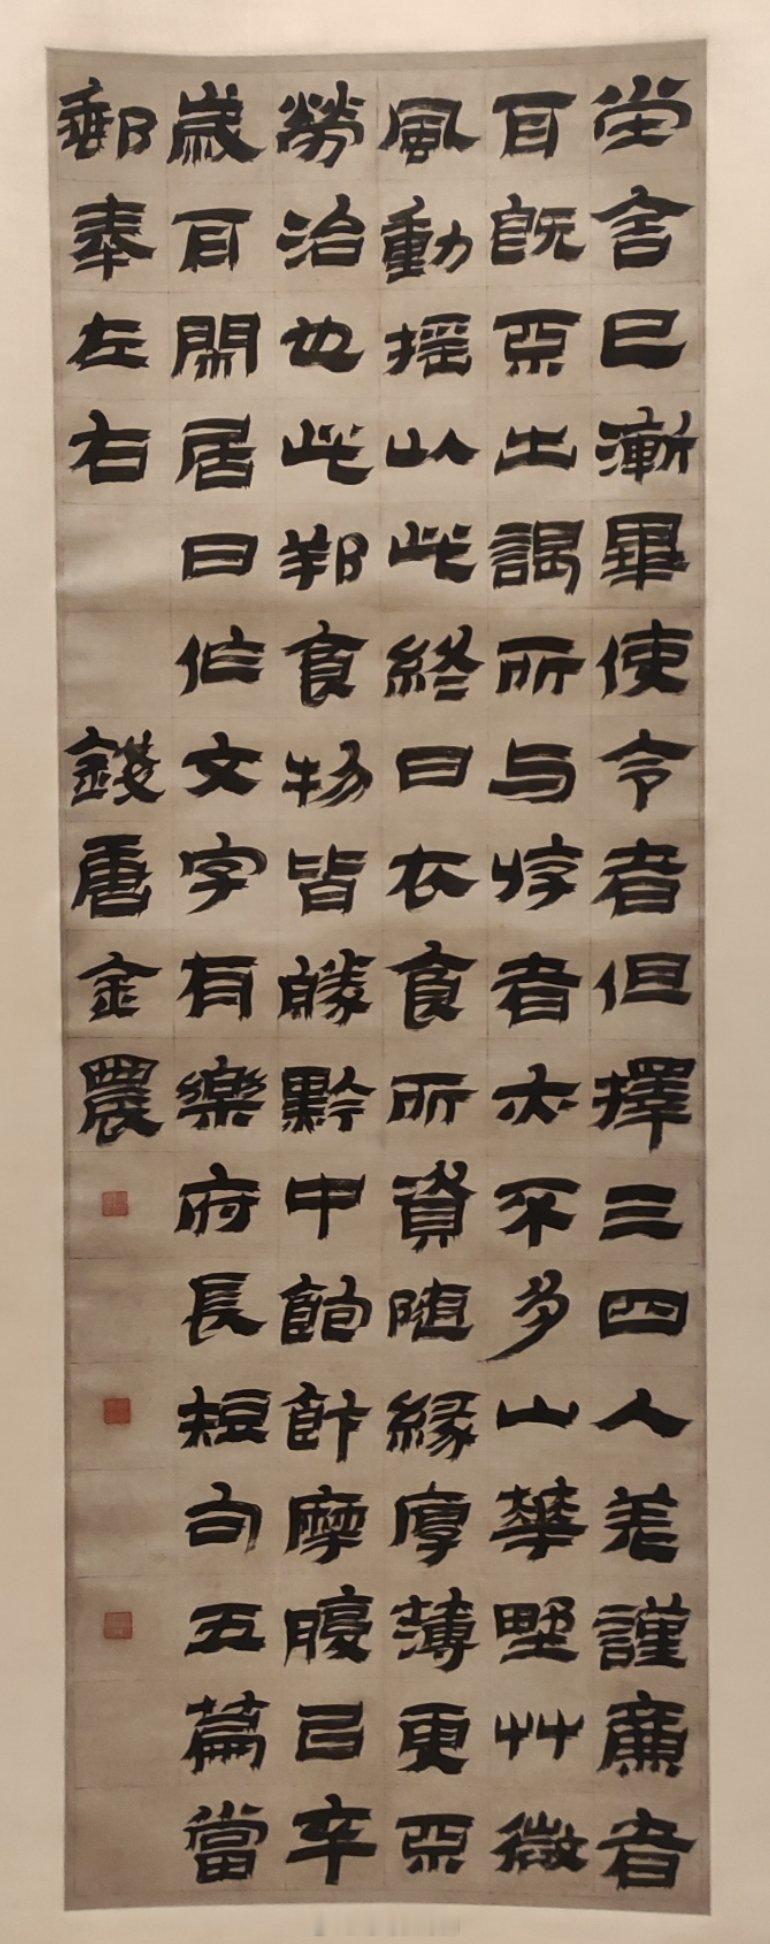 坣舍已漸畢使令者但擇三四人差謹廉者
耳既不出謁所与㳺者亦不多山華野艸微
風動搖以此終日衣食所資随緣厚薄更不
勞治也此邦食物皆勝黔中飽飰摩腹已卒
歲耳閒居日作文字有樂府長短句五篇當
郵奉左右 錢唐金農